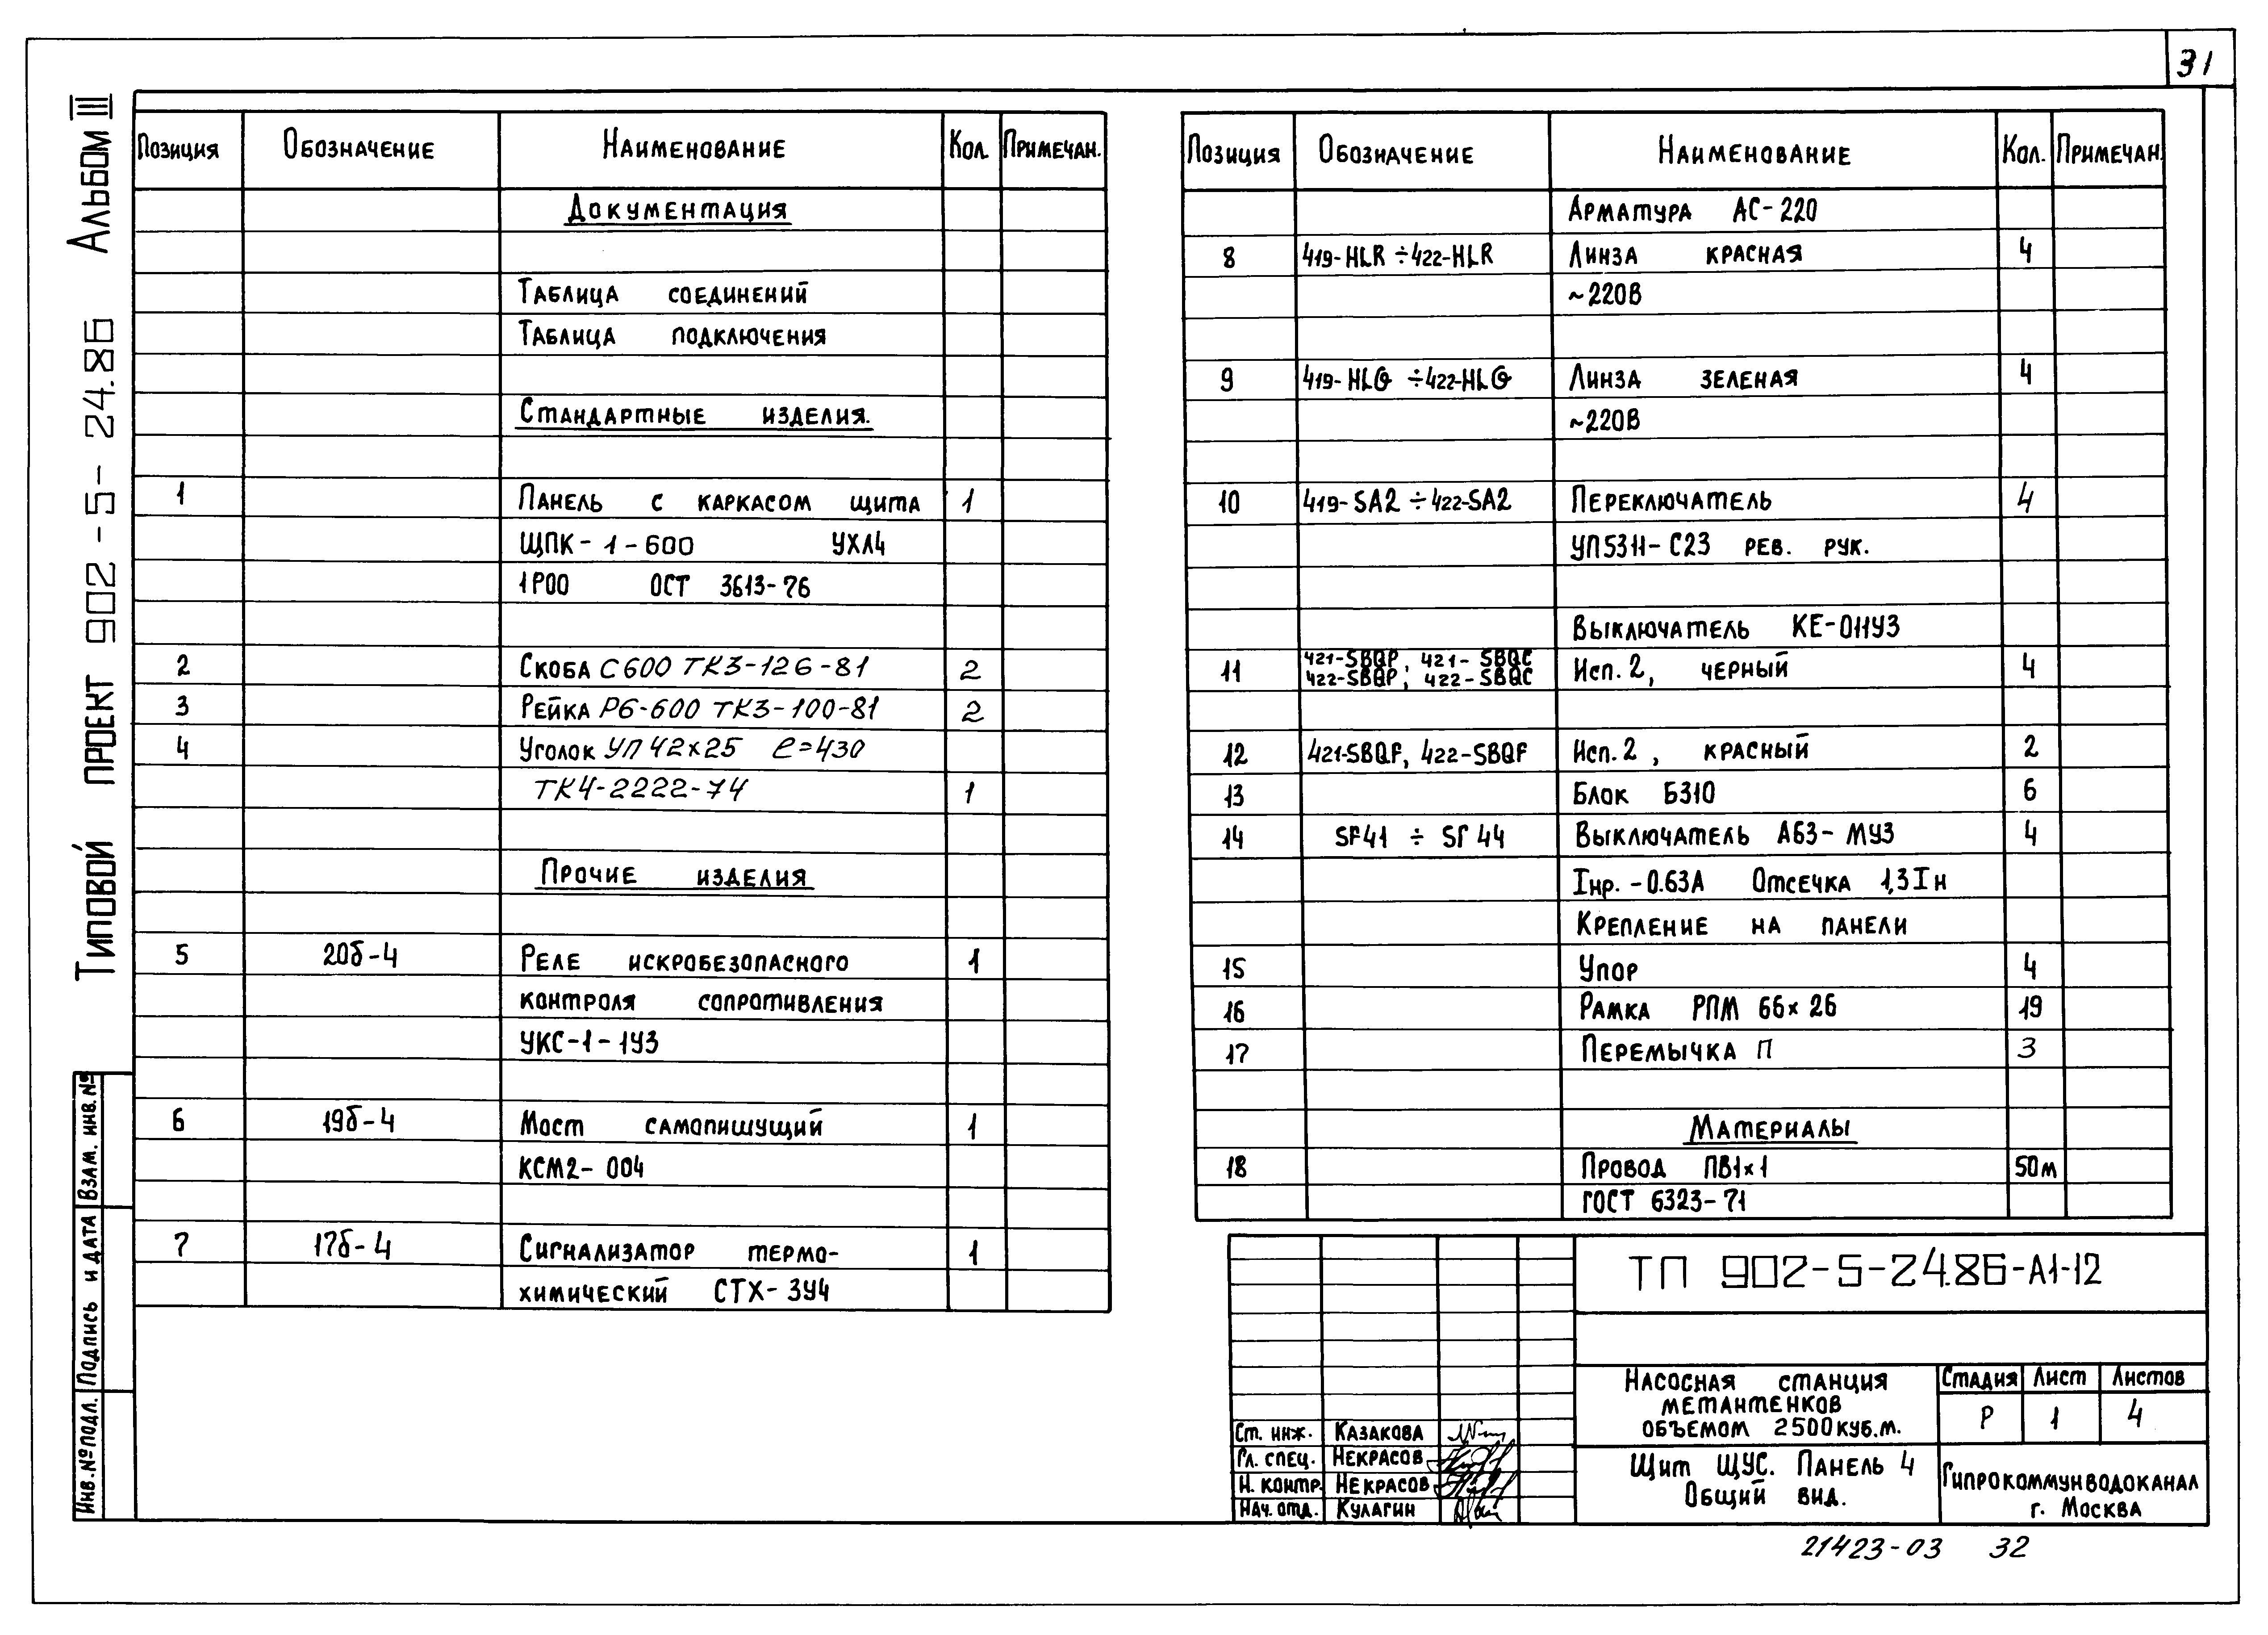 31
Типовой проект 902-5-24.86 Альбом III
Позиция Обозначение Наименование Кол. Примечан.
Документация
Таблица соединений
Таблица подключения
Стандартные изделия.
1 Панель с каркасом щита 1
ЩПК-1-600 УХЛ4
1Р00 ОСТ 3613-76
2 Скоба С600 ТК3-126-81 2
3 Рейка Р6-600 ТК3-100-81 2
4 Уголок УП 42х25 ℓ=430
ТК4-2222-74 1
Прочие изделия
5 20б-4 Реле искробезопасного 1
контроля сопротивления
УКС-1-1У3
6 19б-4 Мост самопишущий 1
КСМ2-004
7 17б-4 Сигнализатор термо- 1
химический СТХ-3У4
Позиция Обозначение Наименование Кол. Примечан.
Арматура АС-220
8 419-HLR÷422-HLR Линза красная 4
~220В
9 419-HLG÷422-HLG Линза зеленая 4
~220В
10 419-SA2÷422-SA2 Переключатель 4
УП5311-С23 рев. рук.
Выключатель КЕ-011У3
421-SBQP, 421-SBQC
11 Исп. 2, черный 4
422-SBQP, 422-SBQC
12 421-SBQF, 422-SBQF Исп. 2, красный 2
13 Блок Б310 6
14 SF41 ÷ SF44 Выключатель А63-МУ3 4
Iнр.-0.63А Отсечка 1,3Iн
Крепление на панели
15 Упор 4
16 Рамка РПМ 66х26 19
17 Перемычка П 3
Материалы
18 Провод ПВ1х1 50м
ГОСТ 6323-71
Взам. инв. №
Подпись и дата
Инв. № подл.
ТП 902-5-24.86-А1-12
Насосная станция
метантенков
объемом 2500куб.м.
Стадия Лист Листов
Р 1 4
Ст. инж. Казакова
Гл. спец. Некрасов
Н. контр. Некрасов
Нач. отд. Кулагин
Щит ЩУС. Панель 4
Общий вид.
Гипрокоммунводоканал
г. Москва
21423-03 32